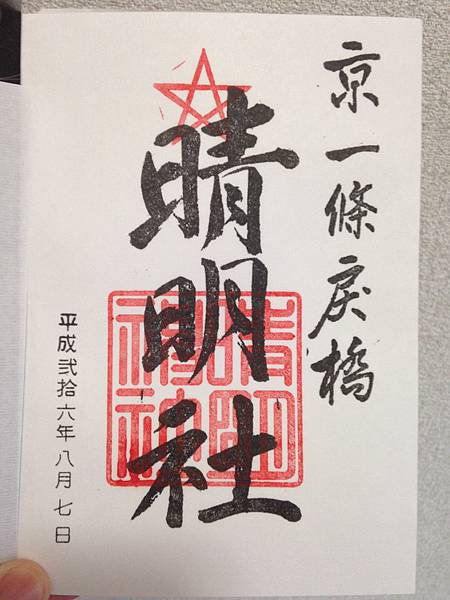 京一條戻橋
晴明社
晴明神社
平成弐拾六年八月七日